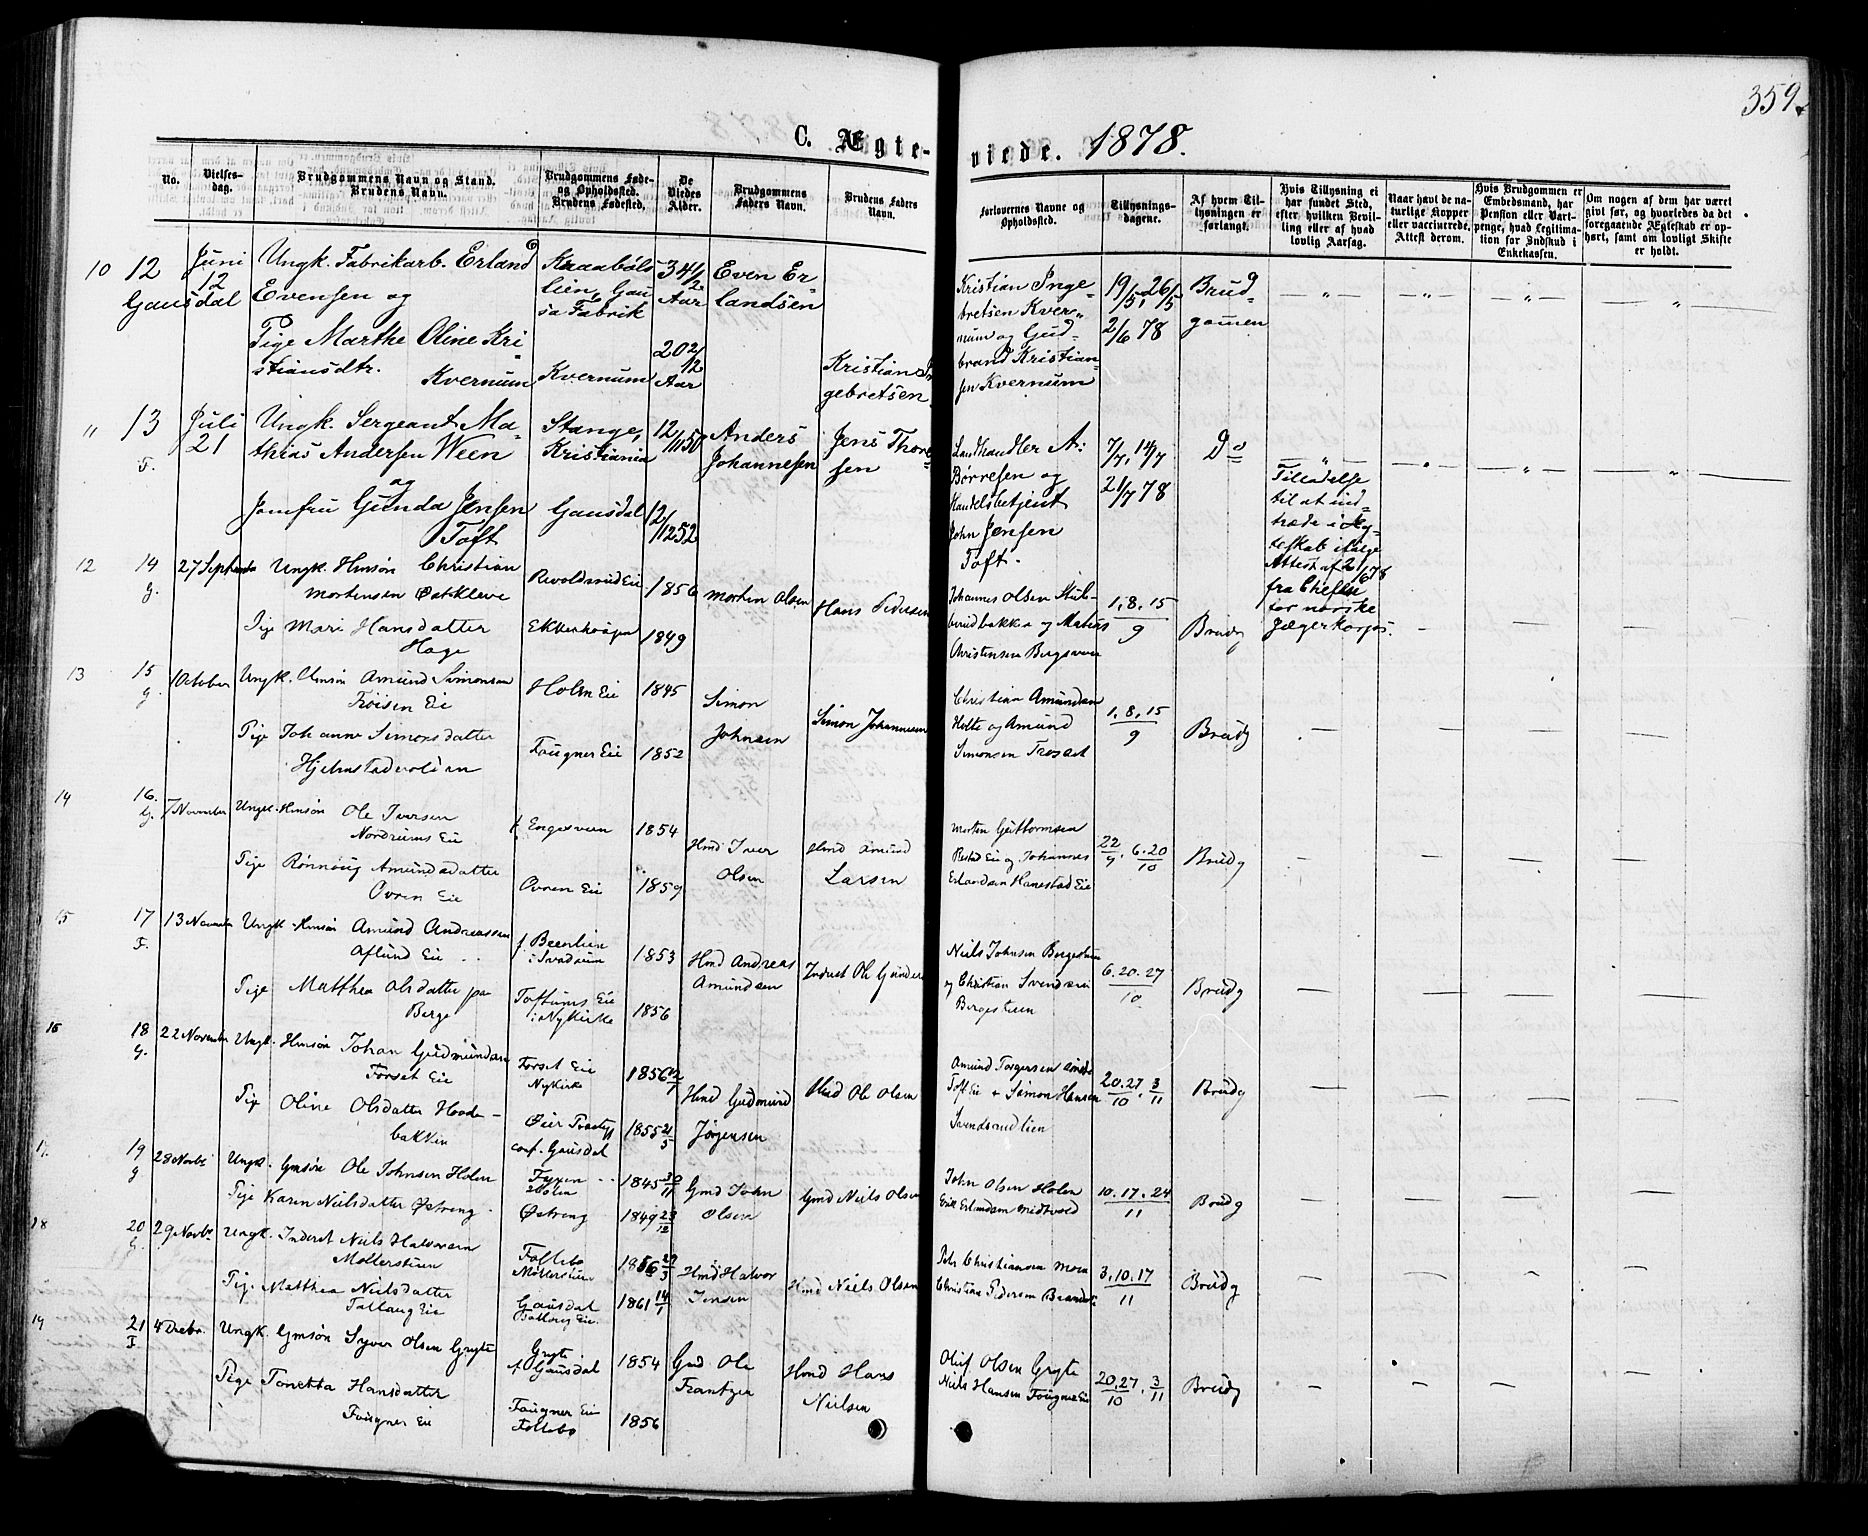 359
C. Ægte-
viede. 1878.
No.
Vielses-
dag.
Brudgommens Navn og Stand.
Brudens Navn.
Brudgommens Føde-
og Opholdssted.
Brudens Fødested.
De
Viedes
Alder.
Brudgommens
Faders Navn.
Brudens Faders
Navn.
Forlovernes Navne og
Opholdssted.
Tillysnings-
dagene.
Af hvem Til-
lysningen er
forlangt.
Hvis Tillysning ei
har fundet Sted,
efter hvilken Bevil-
ling eller af hvad
lovlig Aarsag.
Naar havt de na-
turlige Kopper
eller vaccinerede.
Attest derom.
Hvis Brudgommen er
Embedsmand, har
Pension eller Vart-
penge, hvad Legitima-
tion for Indskud i
Enkekassen.
Om nogen af dem har været
givt før, og hvorledes da det
foregaaende Ægteskab er op-
hørt, samt om lovligt Skifte
er holdt.
10 12 Gausdal
Juni 12
Ungk. Fabrikarb. Erland
Evensen og
Pige Marthe Oline Kri-
stiansdtr. Kvernum
Kraabøls-
lien, Gau-
sa Fabrik
Kvernum
34 1/2 Aar
20 2/12 Aar
Even Er-
landsen
Kristian In-
gebretsen
Kristian Inge-
bretsen Kver-
num og Gud-
brand Kristian-
sen Kvernum
19/5, 26/5
2/6 78
Brud-
gommen
11 13 F.
Juli 21
Ungk. Sergeant Ma-
thias Andersen Ween
og
Jomfru Gunda Jensen
Toft
Stange,
Kristiania
Gausdal
12/11 50
12/12 52
Anders
Johannesen
Jens Thore-
sen
Landhandler A:
Børresen og
Handelsbetjent
John Jensen
Toft.
7/7, 14/7
21/7 78
Do
Tilladelse
til at ind-
træde i Æg-
teskab ifølge
Attest af 21/6 78
fra Chefen
for norske
Jægerkorps.
12 14 g.
27 September
Ungk. Hmsøn Christian
Mortensen Østkleve
Pige Mari Hansdatter
Hage
Eie
1856
1849
Morten Olsen
Hans Pedersen
Johannes Olsen
og
Christensen
1, 8, 15
9
Brudg
13 15 g.
1 October
Ungk. Hmsøn Amund Simonsen
Eie
Pige Johanne Simonsdatter
Holen Eie
Fougner Eie
1845
1852
Simon
Johnsen
Simon Johannesen
Christian Amundsen
Holte og Amund
Simonsen
1, 8, 15
9
Brudg
14 16. G.
7 November
Ungk. Hmsøn Ole Iversen
Nordrums Eie
Pige Rønnoug Amundsdatter
Ovren Eie
f. Engesveen
Ovren Eie
1854
1859
Hmd Iver
Olsen
Hmd Amund
Larsen
Morten Guttormsen
Eie og Johannes
Erlandsen Hanestad Eie
22/9. 6.20/10
Brudg
15 17 F.
13 November
Ungk. Hmsøn Amund Andreassen
Aflund Eie
Pige Matthea Olsdatter paa
Berge
f. Beerlien
i Svadsum
Toftums Eie
i Nykirke
1853
1856
Hmd Andreas
Amundsen
Inderst Ole
Niels Johnsen Bergestuen
og Christian Svendsen
Bergestuen
6. 20. 27
10
Brudg
16 18 g.
22 November
Ungk. Hmsøn Johan Gudmundsen
Forset Eie
Pige Oline Olsdatter
bakken
Forset Eie
Nykirke
Øier
conf. Gausdal
1856 12/1
1855 21/5
Hmd Gudmund
Jørgensen
Hmd Ole Olsen
Amund Torgersen
Toft Eie + Simon Hansen
Svendsrudlien
20. 27/10. 3/11
Brudg
17. 19 g
28 Novbr
Ungk. Gmsøn Ole Johnsen Holen
Pige Karen Nielsdatter Østreng
Holen
Østreng
1845 30/11
1849 23/12
Gmd John
Olsen
Gmd Niels Olsen
John Olsen Holen
Erik Erlandsen Midtvold
10. 17. 24
11
Brudg
18 20 g.
29 Novbr
Ungk. Inderst Niels Halvorsen
Møllerstuen
Pige Matthea Nielsdatter
Eie
Follebo
Møllerstuen
Gausdal
Eie
1856 27/3
1861 14/1
Hmd Halvor
Jensen
Hmd Niels Olsen
Peder Christiansen Moen
Christian Pedersen
3. 10. 17
11
Brudg
19 21 F
4 Decbr.
Ungk. Gmsøn Syver Olsen Gryte
Pige Tonetta Hansdatter
Fougner Eie
Gryte
f. Gausdal
Fougner Eie
Follebo
1854
1856
Gmd Ole
Frantzen
Hmd Hans
Nielsen
Oluf Olsen Gryte
Niels Hansen Fougner Eie
20. 27/10. 3/11
Brudg